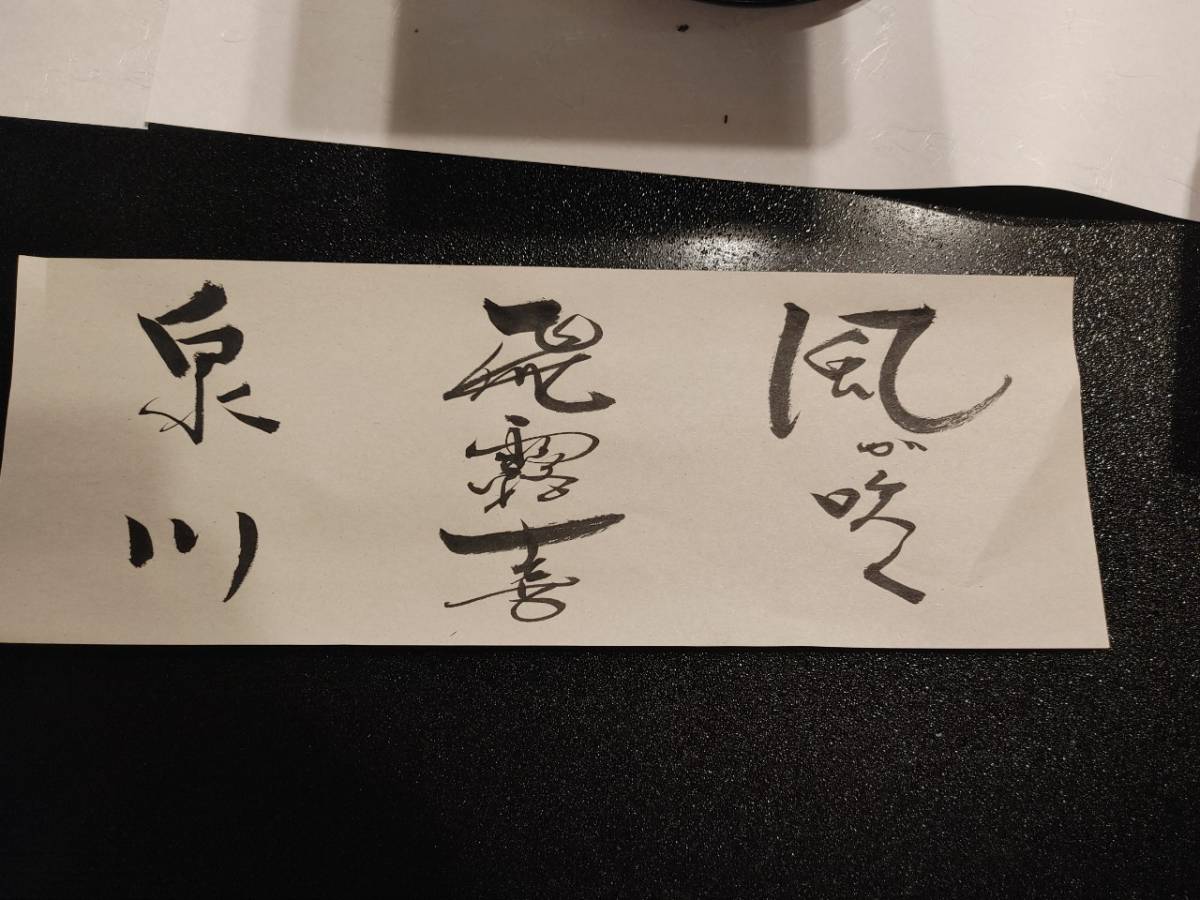 風が吹く
飛露喜
泉川